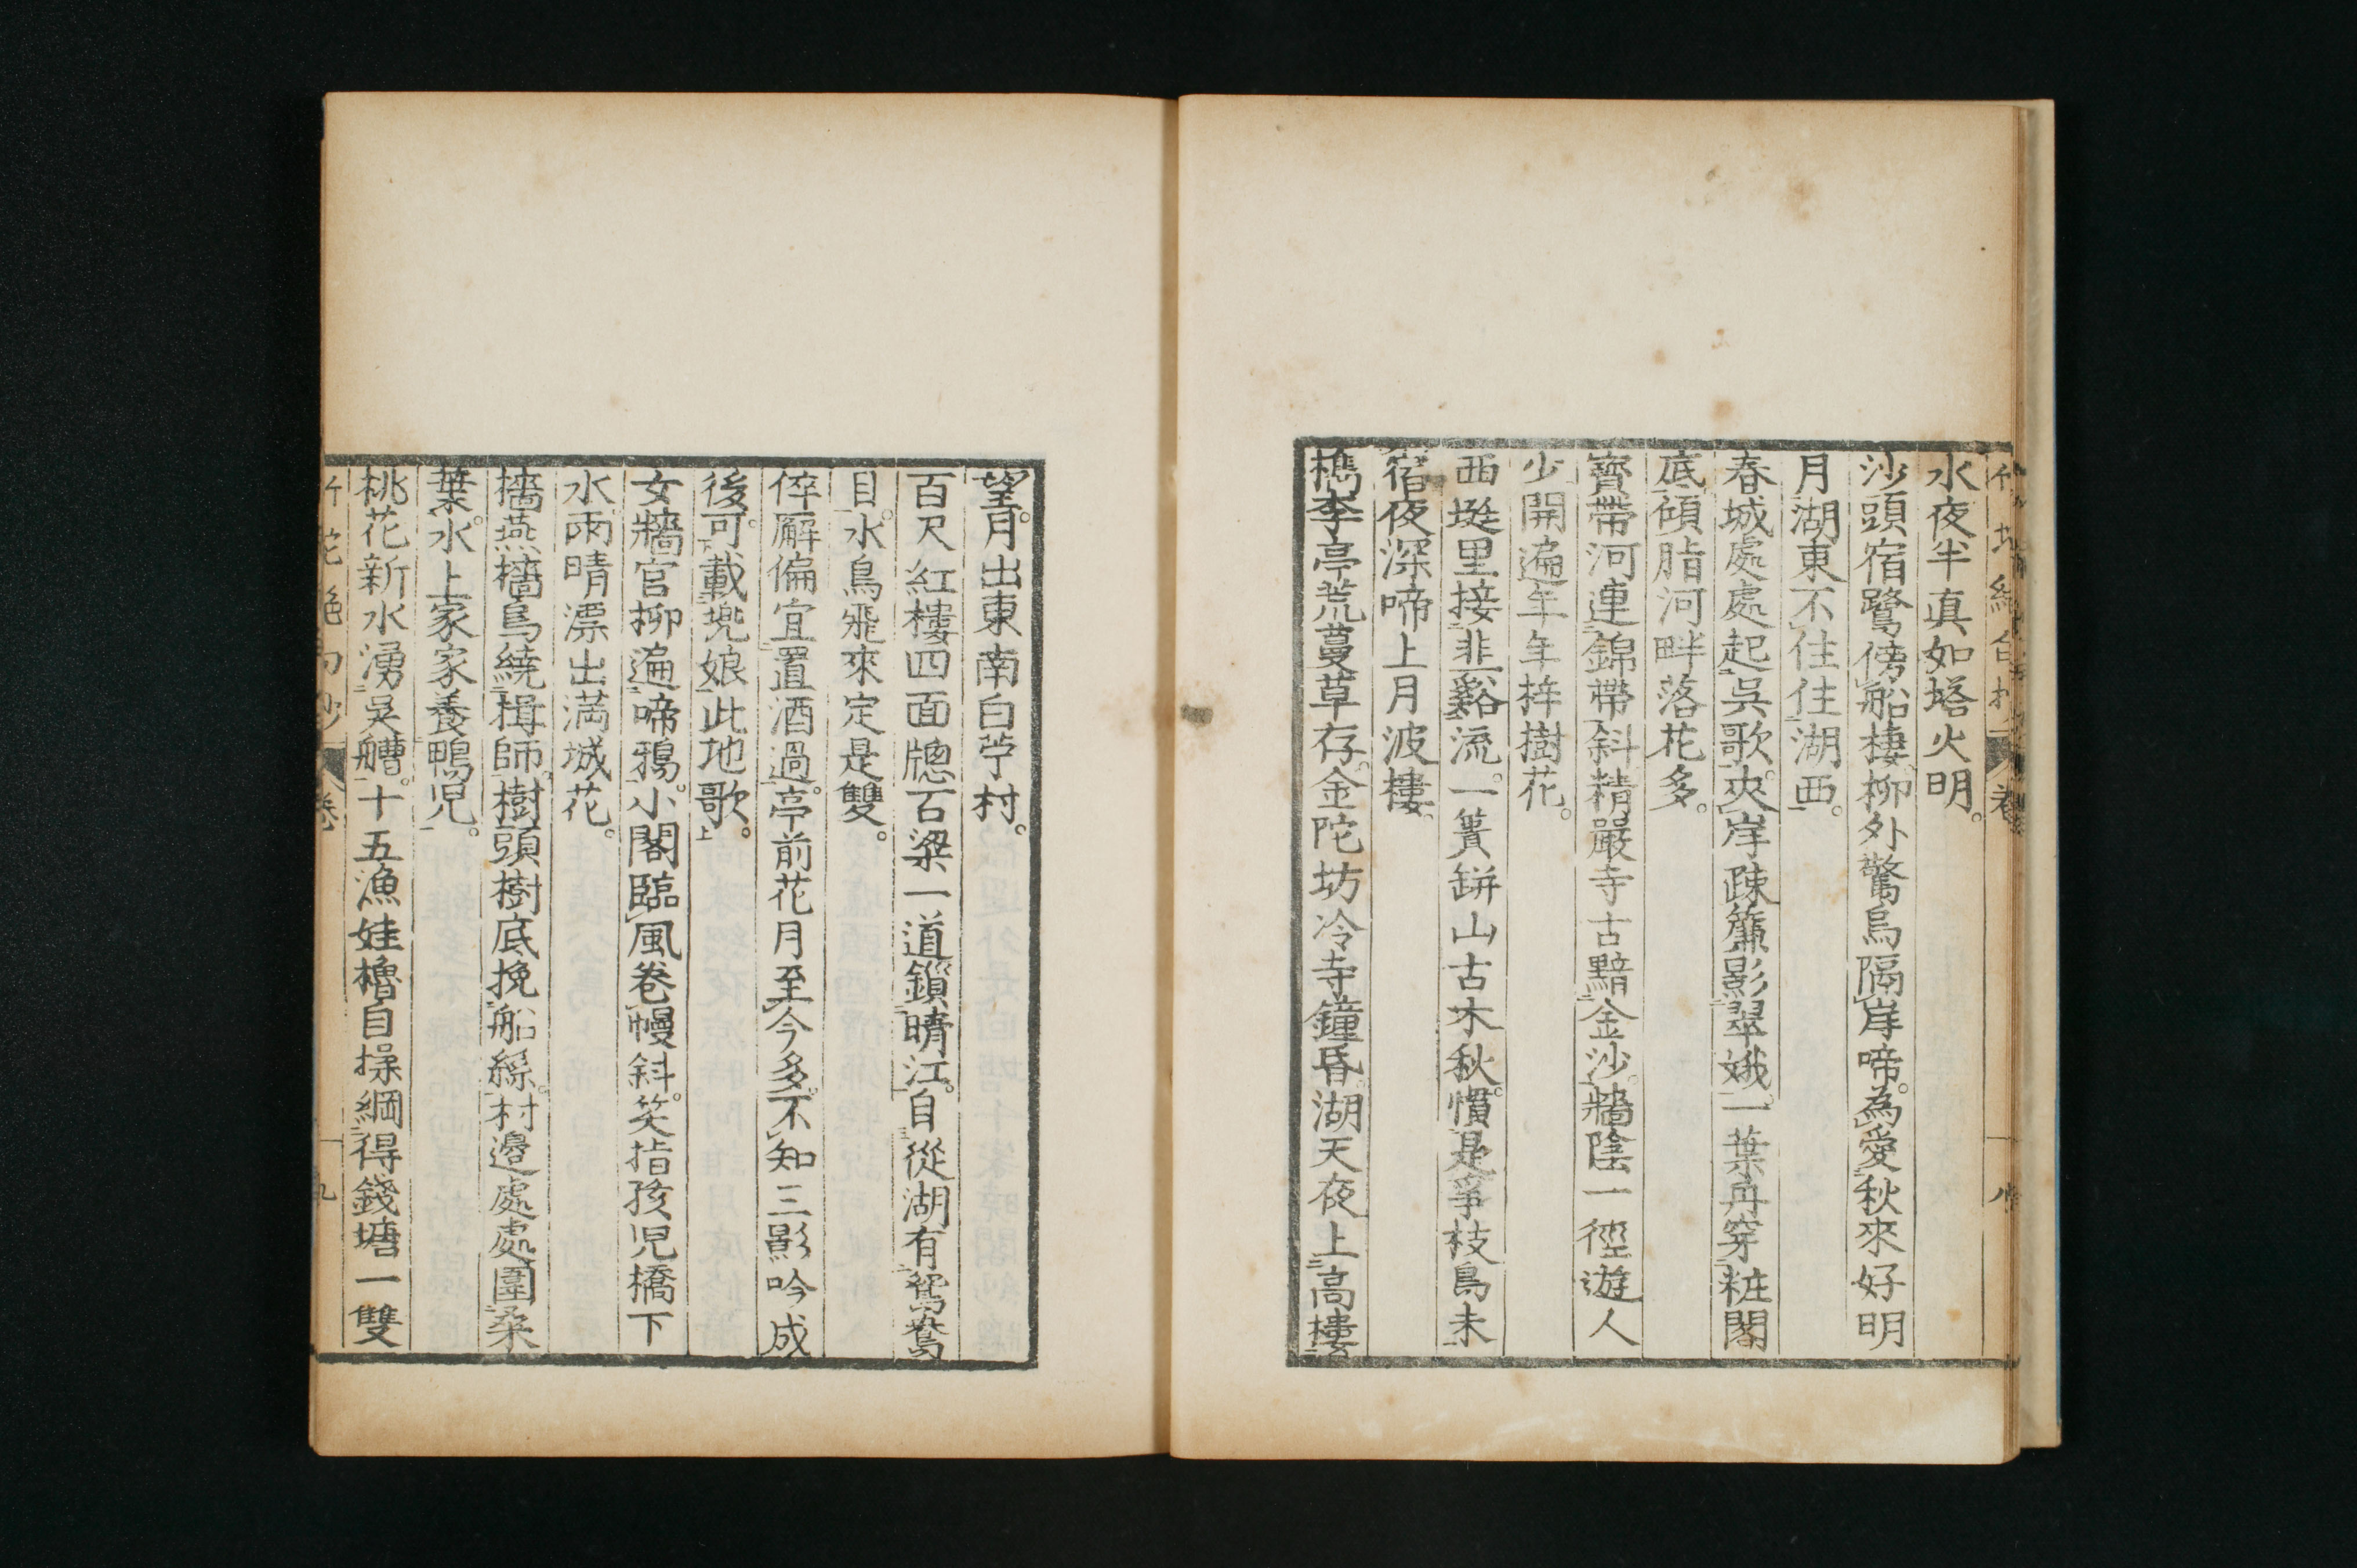 水夜半真如塔火明。
沙頭宿鷺傍船棲柳外驚烏隔岸啼。為愛秋來好明
月湖東不住住湖西。
春城處處起吳歌。夾岸疎簾影翠娥。一葉舟穿粧閣
底。傾脂河畔落花多。
寶帶河連錦帶斜精嚴寺古黯金沙。牆陰一徑遊人
少開遍年年梓樹花。
西埏里接韭谿流。一簣缾山古木秋。慣是爭枝鳥未
宿夜深啼上月波樓。
檇李亭荒蔓草存。金陀坊冷寺鐘昏。湖天夜上高樓
望。月出東南白苧村。
百尺紅樓四面牕石梁一道鎖晴江。自從湖有鴛鴦
目。水鳥飛來定是雙。
倅廨偏宜置酒過。亭前花月至今多。不知三影吟成
後。可載兠娘此地歌。
女牆官柳遍啼鴉。小閣臨風卷幔斜。笑指孩児橋下
水雨晴漂出満城花。
檣燕檣烏繞楫師。樹頭樹底挽船絲。村邊處處圍桒
葉。水上家家養鴨児。
桃花新水湧吳艚。十五漁娃櫓自揺網得錢塘一雙
卷
九